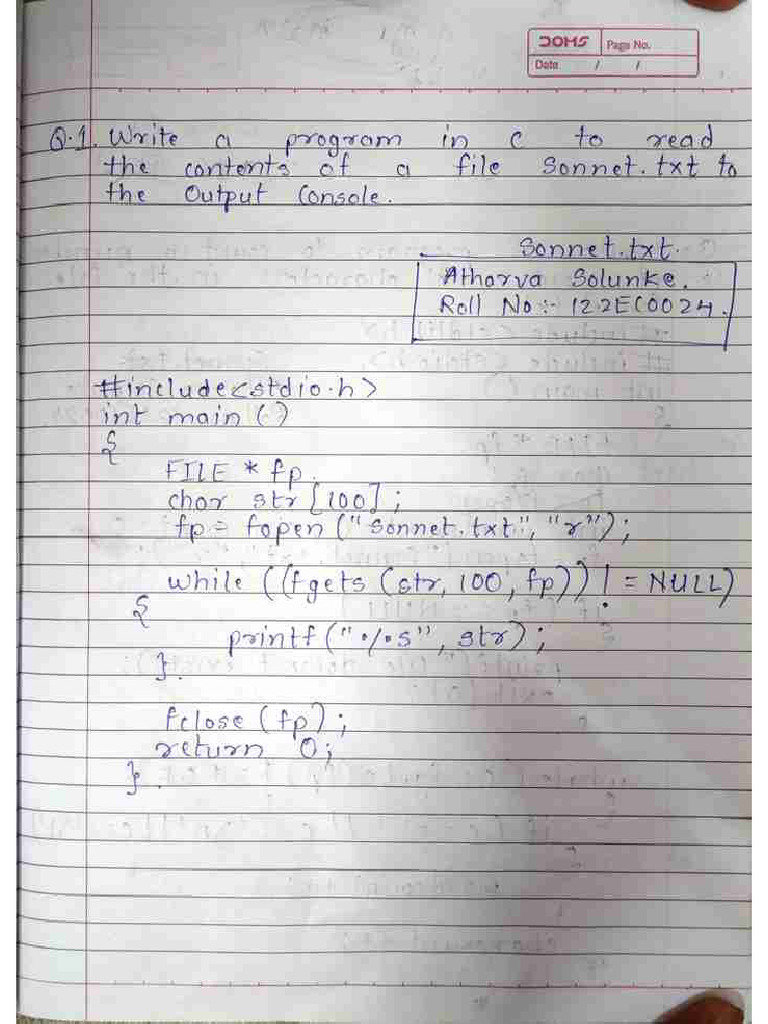 DOMS Page No.
Date / /
Q.1. Write a program in c to read
the contents of a file Sonnet.txt to
the Output Console.
Sonnet.txt.
Atharva Solunke.
Roll No :- 122EC0024.
#include<stdio.h>
int main ()
{
FILE * fp.
char str [100];
fp = fopen ("Sonnet.txt", "r");
while ((fgets (str, 100, fp)) != NULL)
{
printf ("%s", str);
}.
fclose (fp);
return 0;
}.